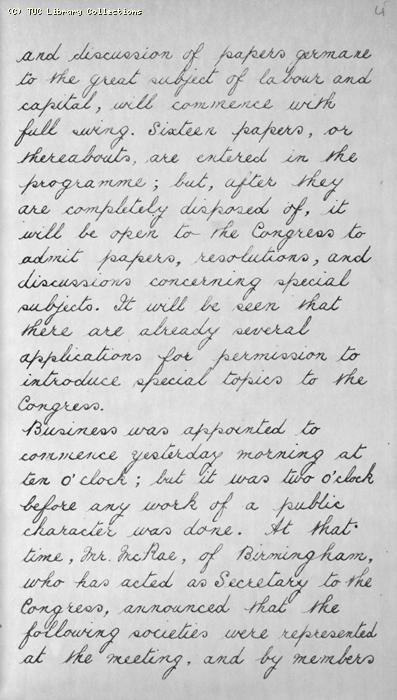 (C) TUC Library Collections
4
and discussion of papers germane
to the great subject of labour and
capital, will commence with
full swing. Sixteen papers, or
thereabouts, are entered in the
programme; but, after they
are completely disposed of, it
will be open to the Congress to
admit papers, resolutions, and
discussions concerning special
subjects. It will be seen that
there are already several
applications for permission to
introduce special topics to the
Congress.
Business was appointed to
commence yesterday morning at
ten o'clock; but it was two o'clock
before any work of a public
character was done. At that
time, Mr. McRae, of Birmingham,
who has acted as Secretary to the
Congress, announced that the
following societies were represented
at the meeting, and by members